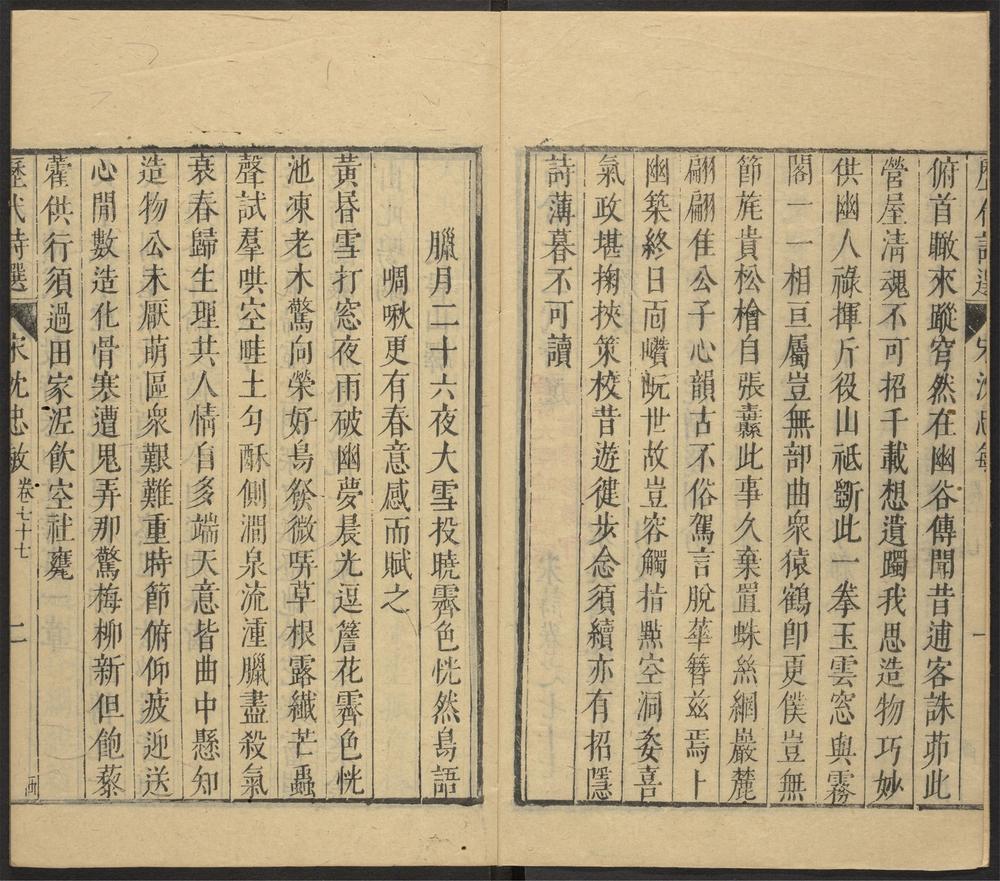 歷代詩選
宋沈忠敏
一
俯首瞰來蹤窅然在幽谷傳聞昔逋客誅茆此
營屋淸魂不可招千載想遺躅我思造物巧妙
供幽人祿揮斤役山祗斵此一拳玉雲窓與霧
閣一一相亘屬豈無部曲衆猿鶴即更僕豈無
節旄貴松檜自張纛此事久棄置蛛絲網巖麓
翩翩佳公子心韻古不俗駕言脫華簪兹焉卜
幽築終日面巑岏世故豈容觸指點空洞姿喜
氣政堪掬挾策校昔遊徤步念須續亦有招隱
詩薄暮不可讀
臘月二十六夜大雪投曉霽色恍然鳥語
啁啾更有春意感而賦之
黃昏雪打窓夜雨破幽夢晨光逗簷花霽色恍
池凍老木驚向榮好鳥
微哢草根露纖芒蟲
聲試羣哄空畦土勻酥側澗泉流湩臘盡殺氣
衰春歸生理共人情自多端天意皆曲中懸知
造物公未厭萌區衆艱難重時節俯仰疲迎送
心閒數造化骨寒遭鬼弄那驚梅柳新但飽藜
藿供行須過田家泥飲空社甕
歷代詩選
宋沈忠敏
卷七十七
二